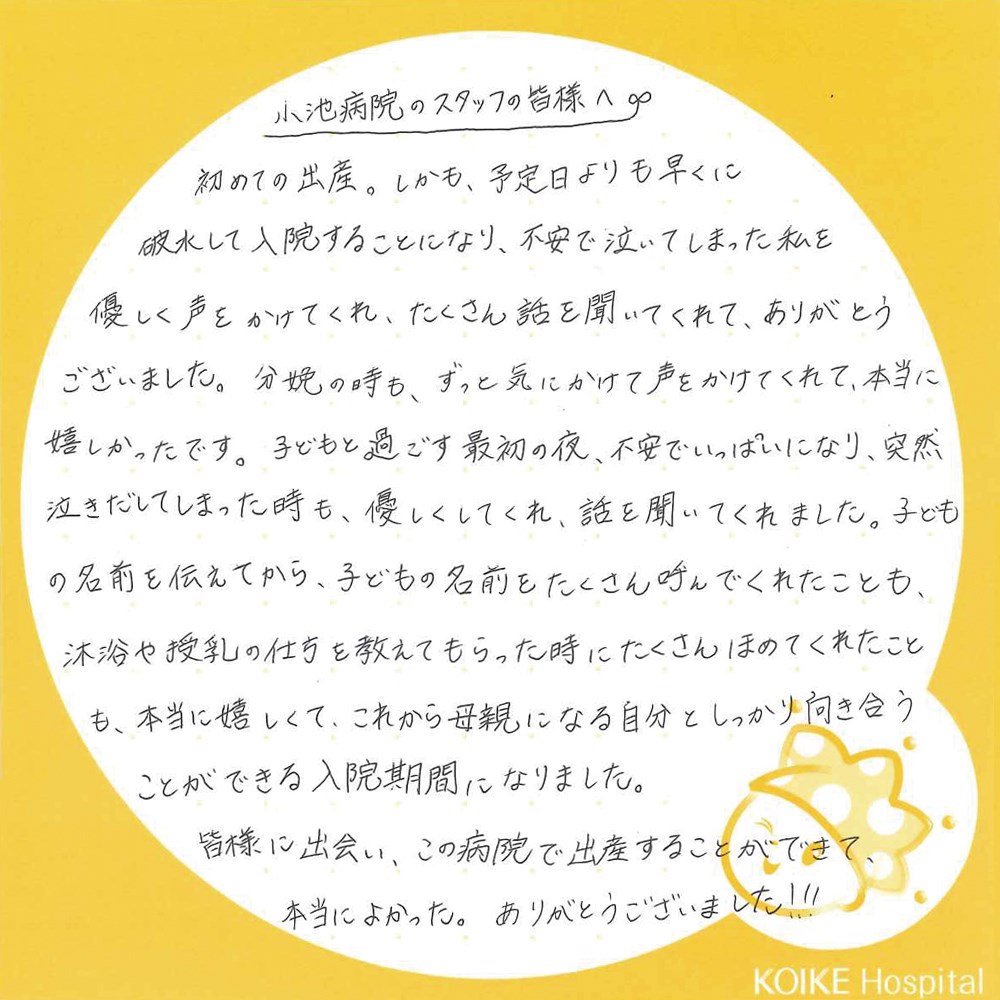 小池病院のスタッフの皆様へ
初めての出産。しかも、予定日よりも早くに
破水して入院することになり、不安で泣いてしまった私を
優しく声をかけてくれ、たくさん話を聞いてくれて、ありがとう
ございました。分娩の時も、ずっと気にかけて声をかけてくれて、本当に
嬉しかったです。子どもと過ごす最初の夜、不安でいっぱいになり、突然
泣きだしてしまった時も、優しくしてくれ、話を聞いてくれました。子ども
の名前を伝えてから、子どもの名前をたくさん呼んでくれたことも、
沐浴や授乳の仕方を教えてもらった時にたくさんほめてくれたこと
も、本当に嬉しくて、これから母親になる自分としっかり向き合う
ことができる入院期間になりました。
皆様に出会い、この病院で出産することができて、
本当によかった。ありがとうございました!!!
KOIKE Hospital